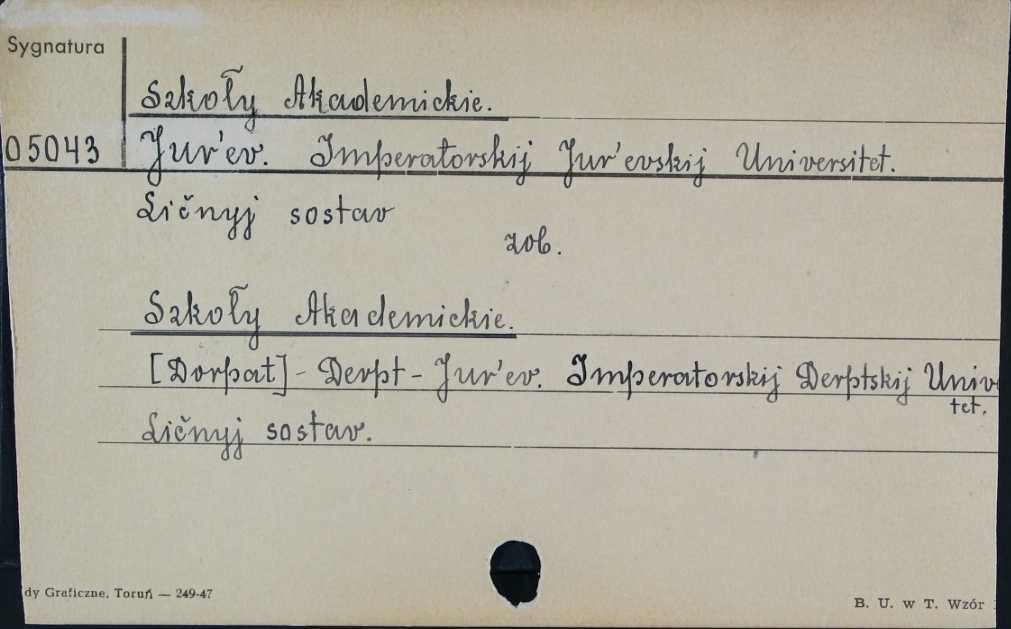 Sygnatura
Szkoły Akademickie.
05043 Jur'ev. Imperatorskij Jur'evskij Universitet.
Ličnyj sostav
zob.
Szkoły Akademickie.
[Dorpat] - Derpt - Jur'ev. Imperatorskij Derptskij Univ
tet.
Ličnyj sostav.
dy Graficzne, Toruń — 249-47
B. U. w T. Wzór